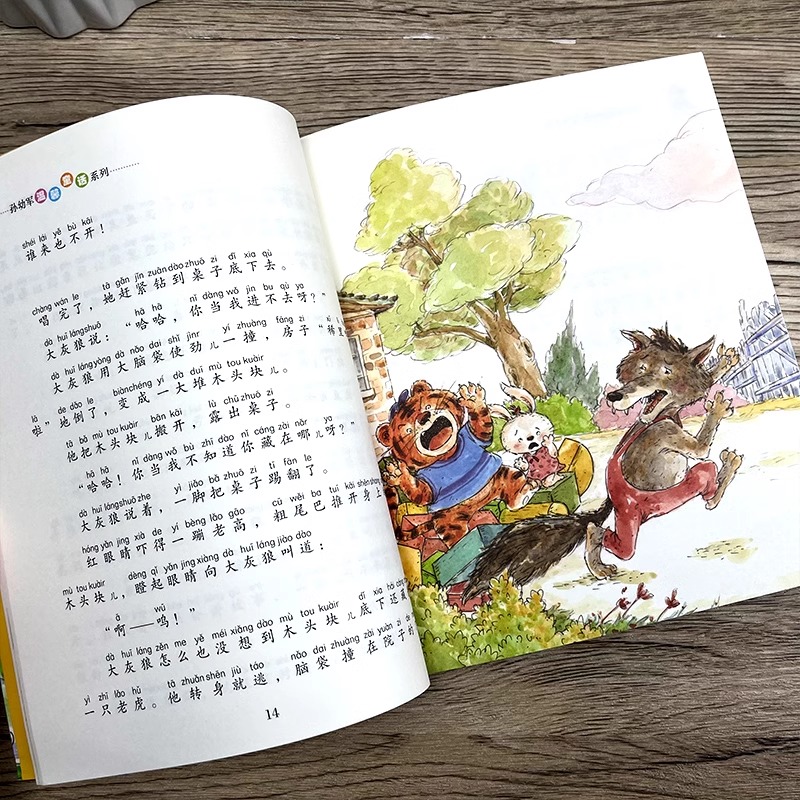 孙幼军温馨童话系列
shéi lái yě bù kāi
谁来也不开!
chàng wán le tā gǎn jǐn zuān dào zhuō zi dǐ xia qù
唱完了,她赶紧钻到桌子底下去。
dà huī láng shuō hā hā nǐ dàng wǒ jìn bu qù ya
大灰狼说:“哈哈,你当我进不去呀?”
dà huī láng yòng dà nǎo dai shǐ jìnr yí zhuàng fáng zi
大灰狼用大脑袋使劲儿一撞,房子“稀里
lā de dǎo le biàn chéng yí dà duī mù tou kuàir
啦”地倒了,变成一大堆木头块儿。
tā bǎ mù tou kuàir bān kāi lù chū zhuō zi
他把木头块儿搬开,露出桌子。
hā hā nǐ dàng wǒ bù zhī dào nǐ cáng zài nǎr ya
“哈哈!你当我不知道你藏在哪儿呀?”
dà huī láng shuō zhe yì jiǎo bǎ zhuō zi tī fān le
大灰狼说着,一脚把桌子踢翻了。
hóng yǎn jing xià de yí bèng lǎo gāo cū wěi ba tuī kāi shēn shang
红眼睛吓得一蹦老高,粗尾巴推开身上
mù tou kuàir dèng qǐ yǎn jing xiàng dà huī láng jiào dào
木头块儿,瞪起眼睛向大灰狼叫道:
ā wū
“啊——呜!”
dà huī láng zěn me yě méi xiǎng dào mù tou kuàir dǐ xia hái cáng
大灰狼怎么也没想到木头块儿底下还藏
yì zhī lǎo hǔ tā zhuǎn shēn jiù táo nǎo dai zhuàng zài yuàn zi de
一只老虎。他转身就逃,脑袋撞在院子的
14